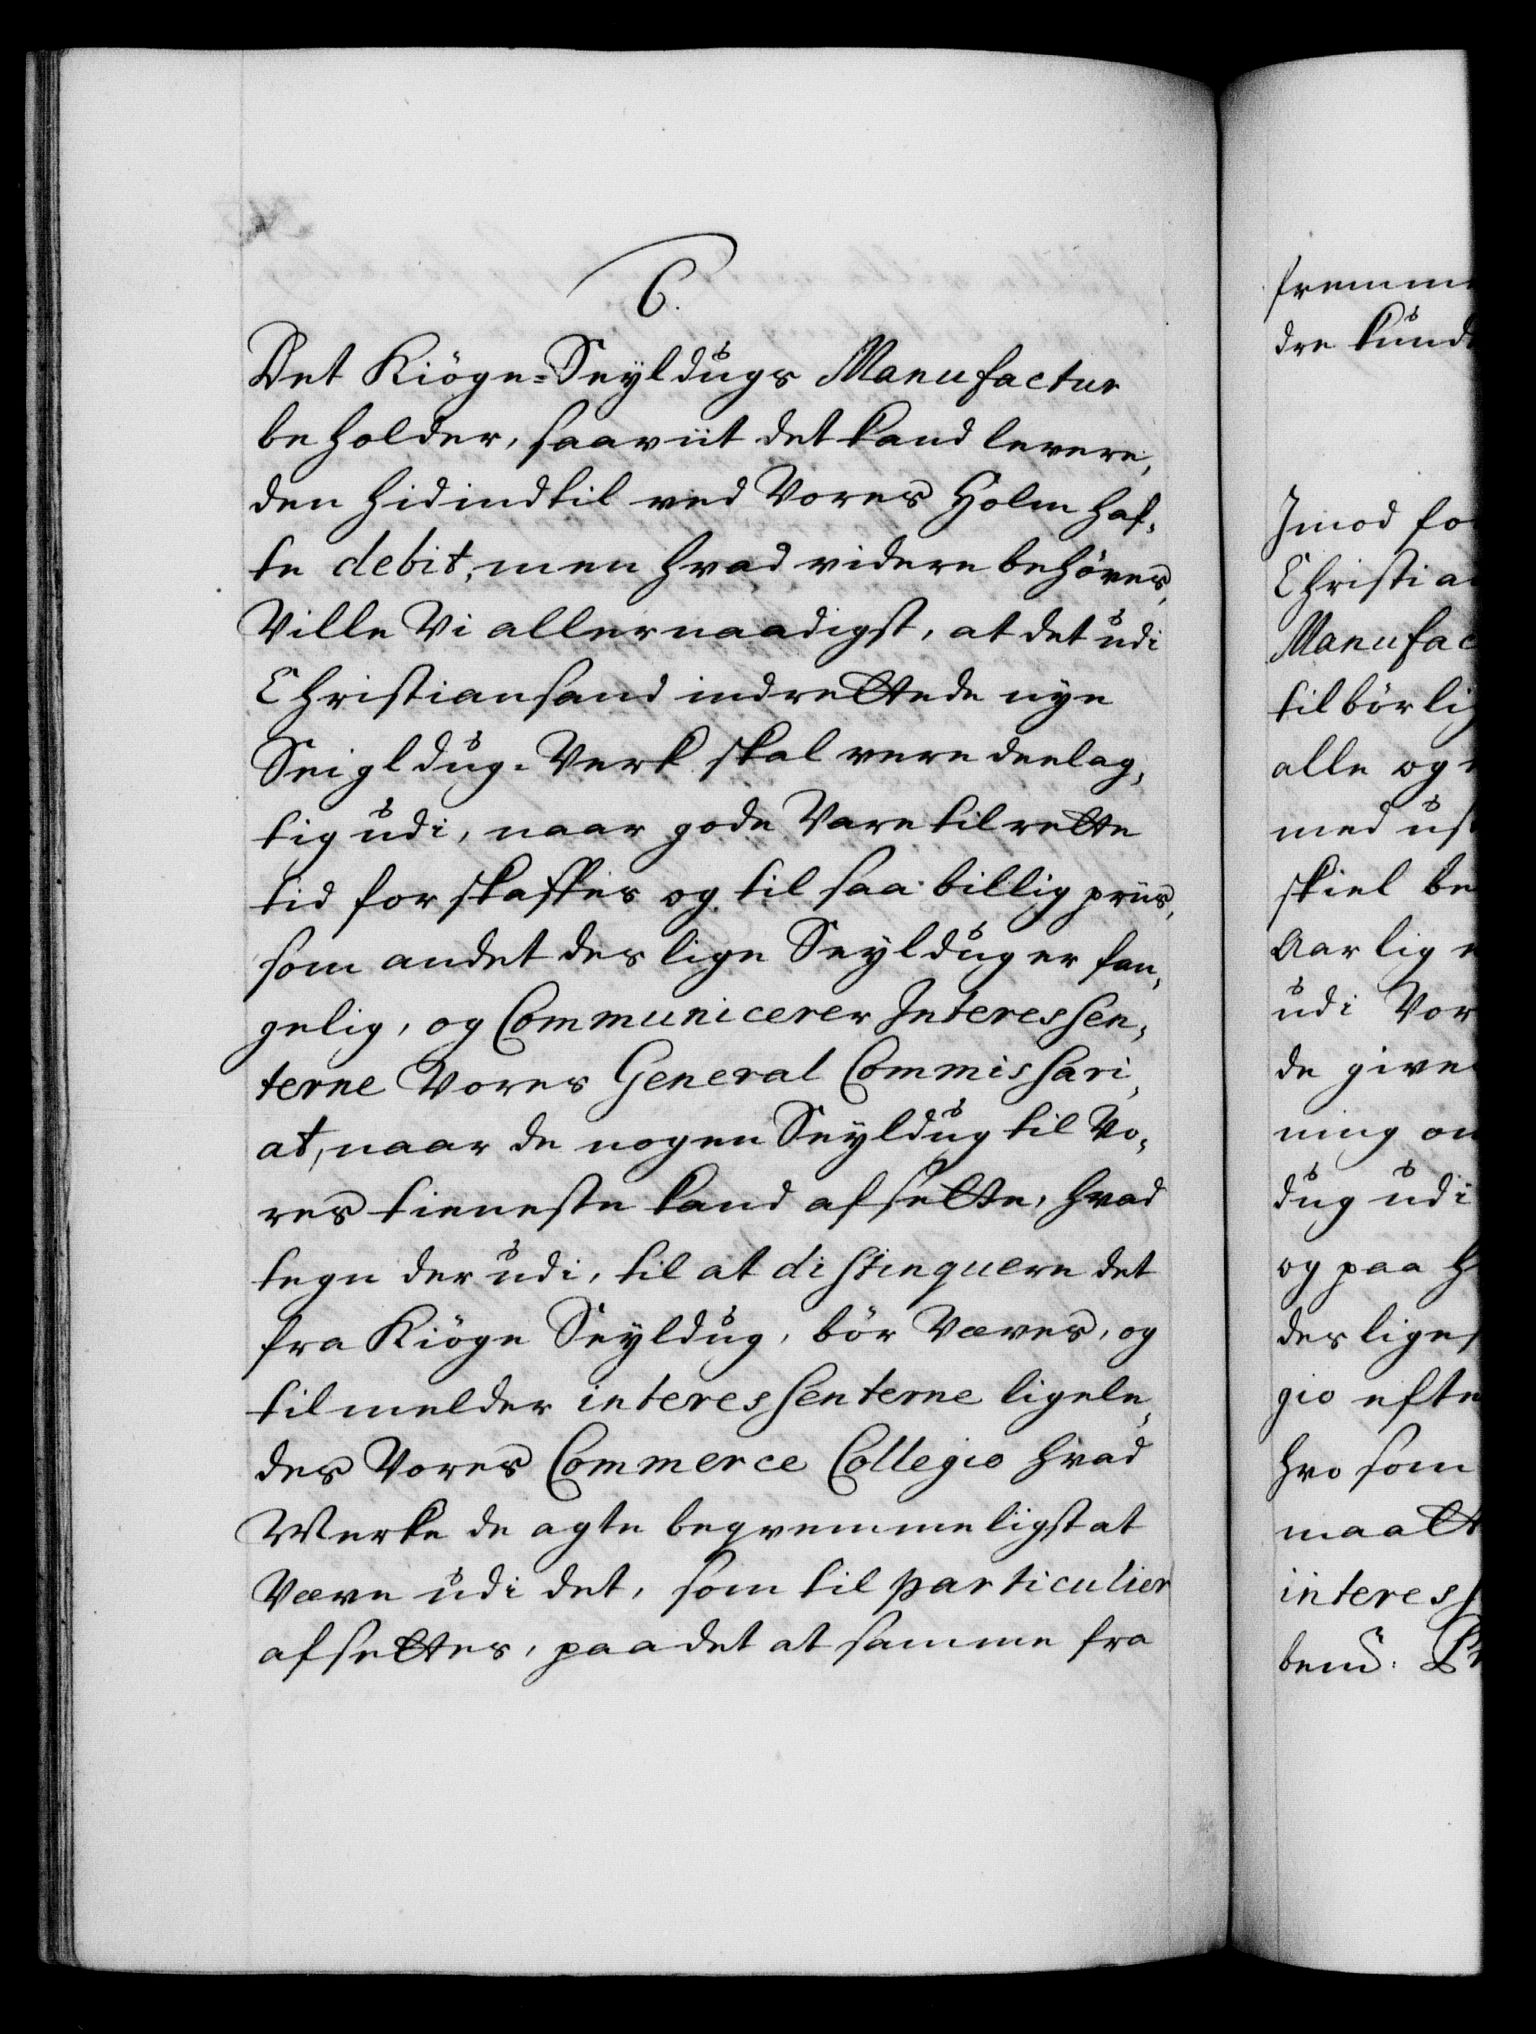 6.
Det Kiöge-Seyldugs Manufactur
beholder, saaviit det kand levere,
den hidindtil ved Vores Holm haf-
te debit, men hvad videre behöves,
Ville Vi allernaadigst, at det udi
Christiansand indrettede nye
Seigldug-Verk skal være deelag-
tig udi, naar gode Vare til rette
tid forskaffes og til saa billig priis,
som andet deslige Seyldug er fan-
gelig, og Communicerer Interessen-
terne Vores General Commissari-
at, naar de nogen Seyldug til Vo-
res tieneste kand afsætte, hvad
tegn der udi, til at distinquere det
fra Kiöge Seyldug, bör Væves, og
tilmelder interessenterne ligele-
des Vores Commerce Collegio hvad
Merke de agte beqvemmeligst at
Væve udi det, som til particulier
afsettes, paa det at samme fra
fremm
dre kund
Imod fo
Christia
Manufac
tilbörli
alle og
med us
skiel be
Aarlig
udi Vor
de give
ning om
dug udi
og paa H
desliges
gio efte
hvo som
maatt
interess